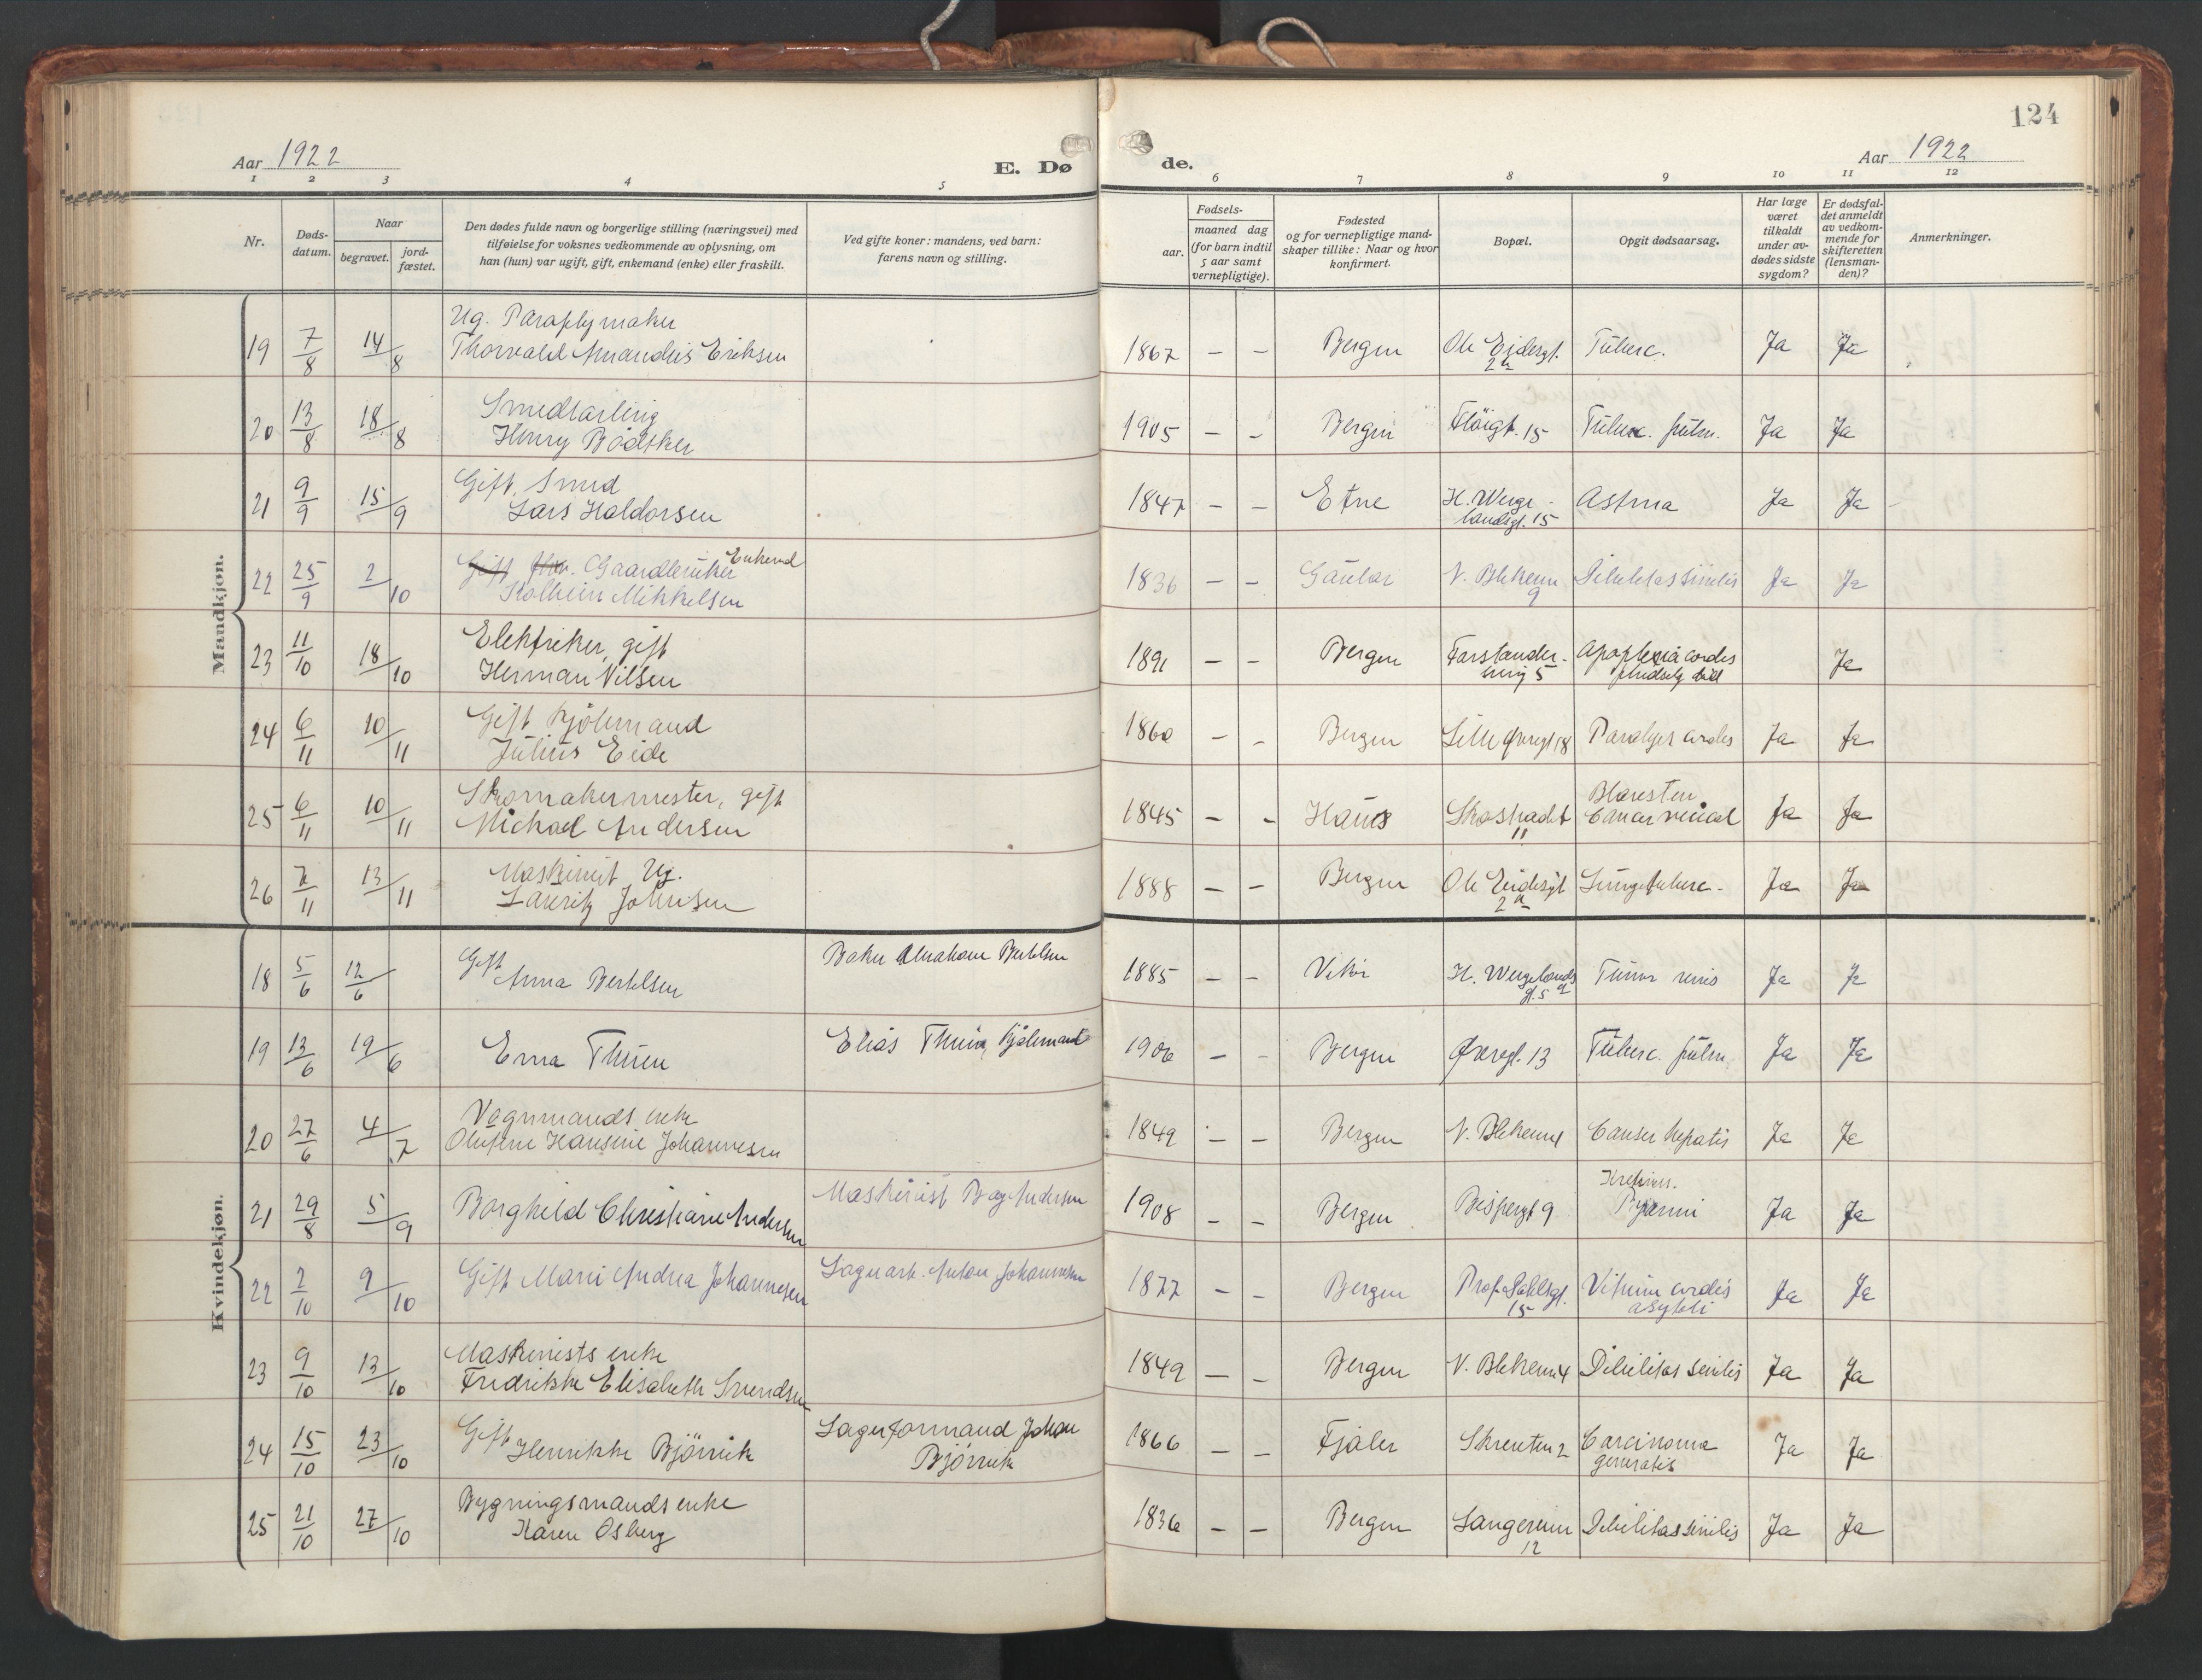 124
Aar 1922
E. Dø
de.
Aar 1922
1 2 3 4 5 6 7 8 9 10 11 12
Nr.
Døds-
datum.
Naar
begravet.
jord-
fæstet.
Den dødes fulde navn og borgerlige stilling (næringsvei) med
tilføielse for voksnes vedkommende av oplysning, om
han (hun) var ugift, gift, enkemand (enke) eller fraskilt.
Ved gifte koner: mandens, ved barn:
farens navn og stilling.
Fødsels-
aar.
maaned dag
(for barn indtil
5 aar samt
vernepligtige).
Fødested
og for vernepligtige mand-
skaper tillike: Naar og hvor
konfirmert.
Bopæl.
Opgit dødsaarsag.
Har læge
været
tilkaldt
under av-
dødes sidste
sygdom?
Er dødsfal-
det anmeldt
av vedkom-
mende for
skifteretten
(lensman-
den)?
Anmerkninger.
Mandkjøn.
Ug. Paraplymaker
19 7/8 14/8 Thorvald Amandus Eriksen 1867 – – Bergen Ole Eidesgt. Tuberc. Ja Ja
2a
Smedlærling
20 13/8 18/8 Henry Bødtker 1905 – – Bergen Fløigt. 15 Tuberc. pulm. Ja Ja
Gift. Smed
21 9/9 15/9 Lars Haldorsen 1847 – – Etne H. Werge- Astma Ja Ja
landsgt. 15
Gift fhv. Gaardbruker Enkemd
22 25/9 2/10 Mikkelsen 1836 – – Gaular N. Blekevn Debilitas senilis Ja Ja
9
Elektriker, gift
23 11/10 18/10 Herman Nilsen 1891 – – Bergen Forstander- Apoplexia cordis Ja
smug 5 pludselig død
Gift Kjølemand
24 6/11 10/11 Julius Eide 1860 – – Bergen Lille Øvregt 18 Paralyses cordis Ja Ja
Skomakermester, gift
25 6/11 10/11 Michael Andersen 1845 – – Haus Skostrædet Blæresten Ja Ja
11 Cancer
Maskinist, Ug.
26 7/11 13/11 Lauritz Johnsen 1888 – – Bergen Ole Eidesgt Lungetuberc. Ja Ja
2a
Kvindekjøn.
Gift
18 5/6 12/6 Anna Bertelsen Baker Abraham Bertelsen 1885 – – Vikør H. Wergelands Tumor renis Ja Ja
gt. 5
19 13/6 19/6 Erna Thuen Elias Thuen, Kjølemand 1906 – – Bergen Øvregt. 13 Tuberc. pulm. Ja Ja
Vognmands enke
20 27/6 4/7 Olufine Hansine Johannesen 1849 – – Bergen N. Blekevn 4 Cancer hepatis Ja Ja
21 29/8 5/9 Borghild Christiane Andersen Maskinist Andersen 1908 – – Bergen Bispengt 9 Pyæmi Ja Ja
22 2/10 9/10 Gift Marie Andrea Johannesen Lagerarb. Anton Johannesen 1877 – – Bergen Prof. Dahlsgt. Vitium cordis Ja Ja
15
Maskinists enke
23 9/10 13/10 Fredrikke Elisabeth Svendsen 1849 – – Bergen N. Blekevn 4 Debilitas senilis Ja Ja
Gift
24 15/10 23/10 Henrikke Bjørvik Lagerformand Johan 1866 – – Fjaler Skrenten 2 Carcinoma Ja Ja
Bjørvik
Bygningsmands enke
25 21/10 27/10 Karen Osberg 1836 – – Bergen Langeveien Debilitas senilis Ja Ja
12